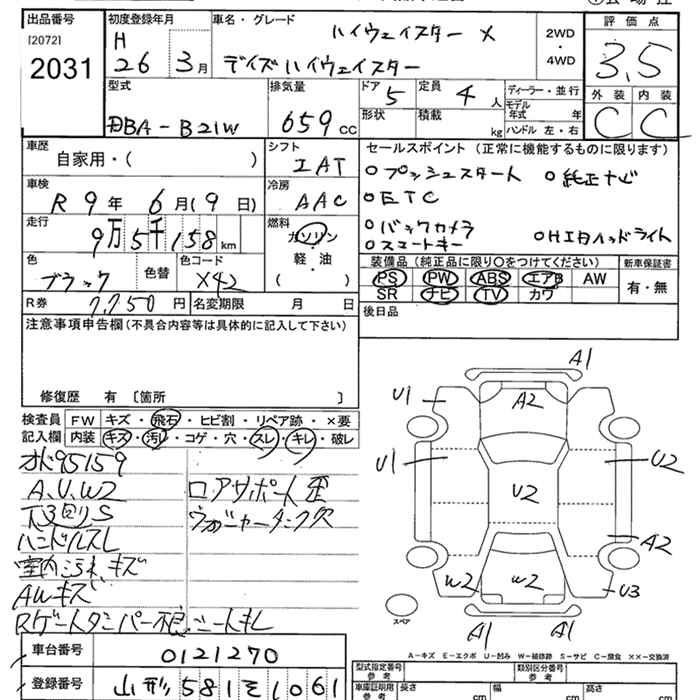 出品番号 初度登録年月 車名・グレード 評価点
[2072] H ハイウェイスター X 2WD
2031 26 3月 デイズハイウェイスター ・ 4WD 3.5
型式 排気量 ドア 5 定員 4人 ディーラー・並行 外装 内装
DBA-B21W 659cc 形状 積載 kg モデル年式 年 ハンドル 左・右 C C
車歴 シフト セールスポイント(正常に機能するものに限ります)
自家用・( ) IAT ○プッシュスタート ○純正ナビ
車検 冷房 ○ETC
R9年 6月(9日) AAC
走行 燃料 ○バックカメラ
9万5千158km ガソリン ○スマートキー ○HIDヘッドライト
色 色替 色コード 軽・油 装備品(純正品に限り○をつけてください) 新車保証書
ブラック X42 ( ) PS PW ABS エアB AW 有・無
R券 7,750円 名変期限 月 日 SR ナビ TV カワ
注意事項申告欄(不具合内容等は具体的に記入して下さい) 後日品
修復歴 有 〔箇所 〕
検査員 FW キズ・飛石・ヒビ割・リペア跡・×要
記入欄 内装 キズ・汚レ・コゲ・穴・スレ・キレ・破レ
95159
A、U、W2 ロアサポート歪
下回りS ウォジャータンク欠
ハンドルスレ
室内汚れ、キズ
AWキズ
Rゲートダンパー不良 シートキレ
車台番号 0121270
登録番号 山形581 1061
A1
U1 A2
U1 U2 U2
A2
W2 W2 U3
スペア A1 A1
A-キズ E-エクボ U-凹み W-補修跡 S-サビ C-腐食 ××-交換済
型式指定番号 参考 類別区分番号 参考
車庫証明用 参考 長さ cm 幅 cm 高さ cm